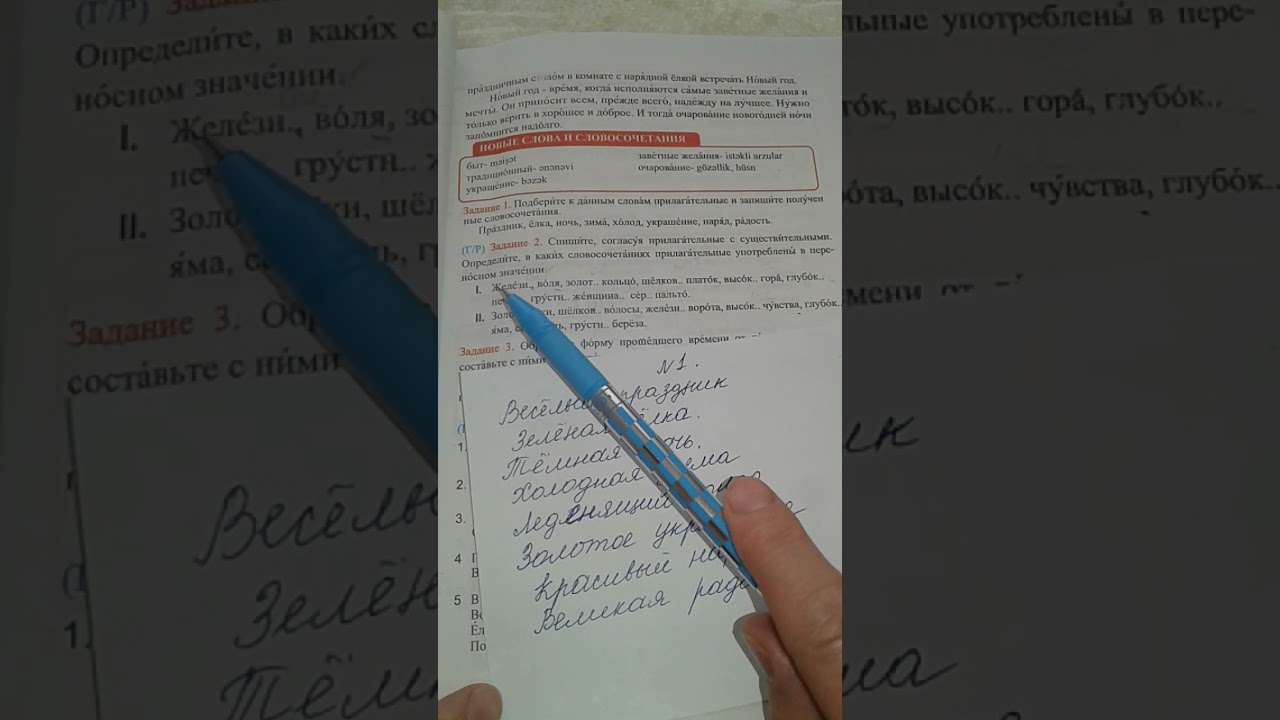 пра́здничным столо́м в комнате с наря́дной ёлкой встреча́ть Но́вый год.
Но́вый год - вре́мя, когда́ исполня́ются са́мые заве́тные жела́ния и
мечты́. Он прино́сит всем, пре́жде всего́, наде́жду на лу́чшее. Ну́жно
то́лько ве́рить в хоро́шее и до́брое. И тогда́ очарова́ние нового́дней но́чи
запо́мнится надо́лго.
НОВЫЕ СЛОВА И СЛОВОСОЧЕТАНИЯ
быт- məişət
традицио́нный- ənənəvi
украше́ние- bəzək
заве́тные жела́ния- istəkli arzular
очарова́ние- gözəllik, hüsn
Зада́ние 1. Подбери́те к да́нным слова́м прилага́тельные и запиши́те получен
ные словосочета́ния.
Пра́здник, ёлка, ночь, зима́, хо́лод, украше́ние, наря́д, ра́дость.
(Г/Р) Зада́ние 2. Спиши́те, согласу́я прилага́тельные с существи́тельными.
Определи́те, в каки́х словосочета́ниях прилага́тельные употреблены́ в пере-
но́сном значе́нии.
I. Желе́зн.. во́ля, золот.. кольцо́, шёлков.. плато́к, высо́к.. гора́, глубо́к..
гру́стн.. же́нщина.. се́р.. пальто́.
II. шёлков.. во́лосы, желе́зн.. воро́та, высо́к.. чу́вства, глубо́к..
я́ма, гру́стн.. берёза.
Зада́ние 3. фо́рму проше́дшего вре́мени
соста́вьте с ни́ми
N1.
праздник
Зелёная ёлка.
Тёмная ночь.
Холодная
Леденящий
Золотое
Красивый
Великая
1.
2.
3.
4 Г
В
5 В
Во
Ёл
По